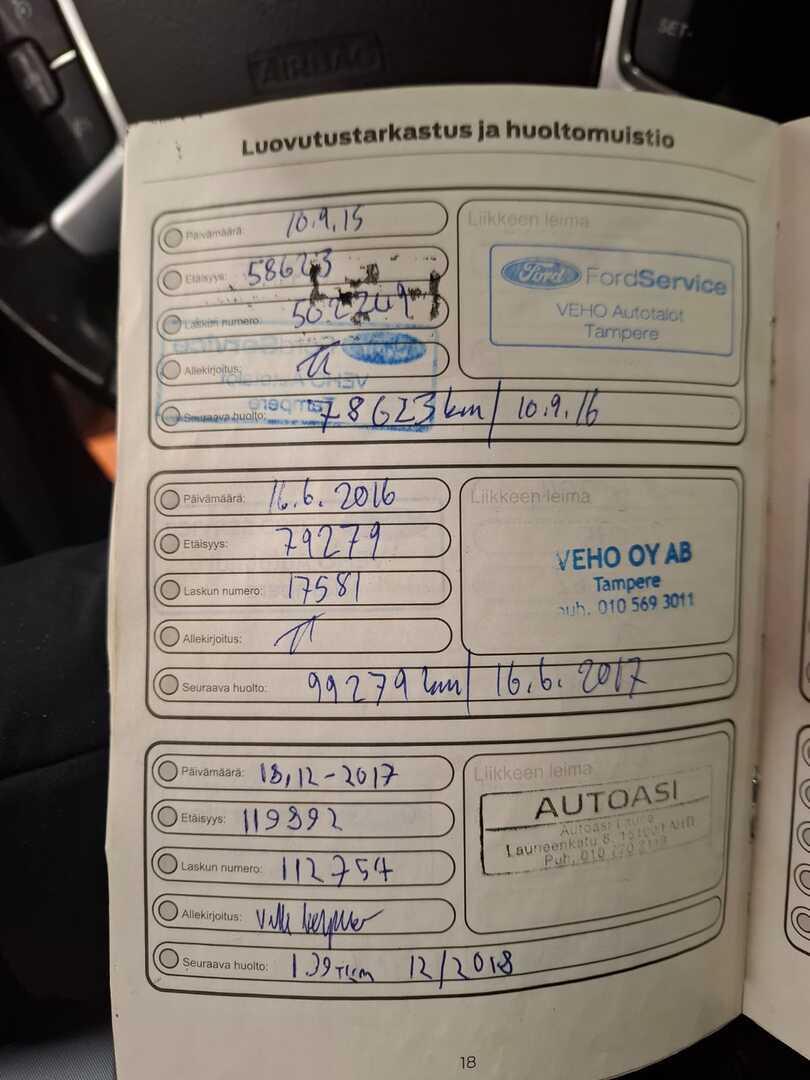 SET-
AIRBAG
Luovutustarkastus ja huoltomuistio
Päivämäärä: 10.9.15
Etäisyys: 58623
Laskun numero: 502249
Allekirjoitus:
Seuraava huolto: 78623 km / 10.9.16
Liikkeen leima
Ford FordService
VEHO Autotalot
Tampere
Päivämäärä: 16.6.2016
Etäisyys: 79279
Laskun numero: 17581
Allekirjoitus:
Seuraava huolto: 99279 km / 16.6.2017
Liikkeen leima
VEHO OY AB
Tampere
puh. 010 569 3011
Päivämäärä: 18.12-2017
Etäisyys: 119392
Laskun numero: 112754
Allekirjoitus:
Seuraava huolto: 139 tkm 12/2018
Liikkeen leima
AUTOASI
Autoasi Laune
Launeenkatu 8, 15100 LAHTI
Puh. 010 770 2119
18